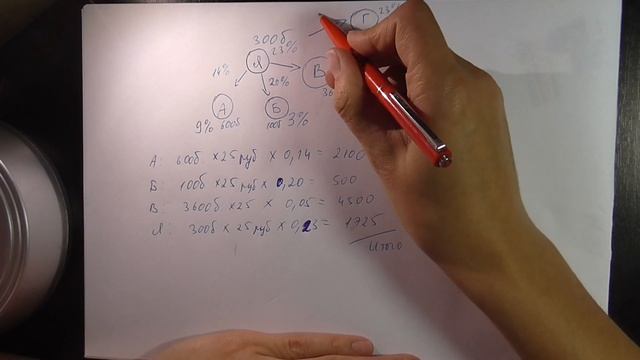 Г 23%
300б
23%
Я
14%
20%
В
36
А
Б
9% 600б
100б 3%
А: 600б × 25 руб × 0,14 = 2100
Б: 100б × 25 руб × 0,20 = 500
В: 3600б × 25 × 0,05 = 4500
Я: 300б × 25 руб × 0,23 = 1725
Итого